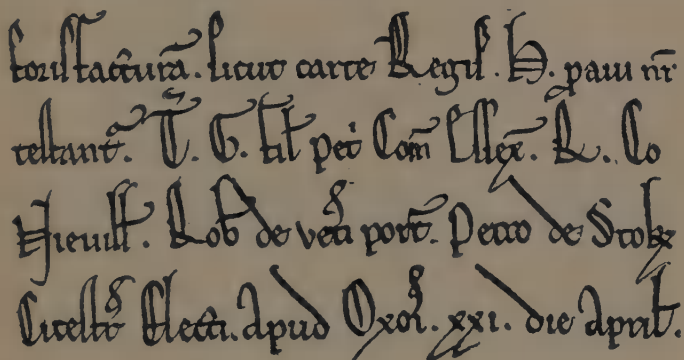 toris facturā. sicut carte Regis. H. pavi nr̄i
testant᷑. T̄. G. fil̄ pet̉ Com̄ Essex̄. R. Co
Nieuill̄. Rob̄ de vet̉i pont̄. Petro de Stok
Cicestr̄ Electi. apud Oxoñ. xxi. die April̄.